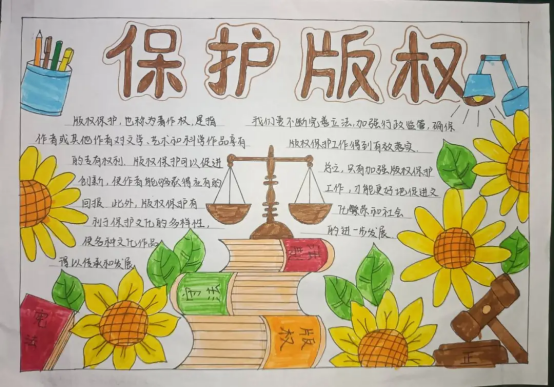 保护版权
版权保护,也称为著作权,是指
作者或其他作者对文学、艺术和科学作品享有
的专有权利。版权保护可以促进
创新,使作者能够获得应有的
回报。此外,版权保护有
利于保护文化的多样性,
使多种文化作品
得以传承和发展。
我们要不断完善立法,加强行政监管,确保
版权保护工作得到有效落实。
总之,只有加强版权保护
工作,才能更好地促进文
化繁荣和社会
的进一步发展。
法
版
权
正